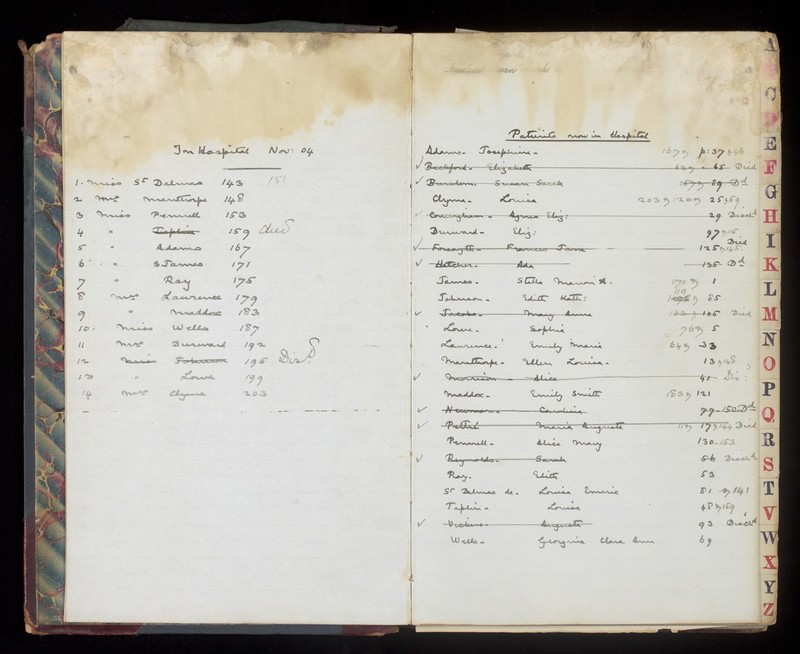 In Hospital Nov: 04
1. Miss St Dalmas 143 151
2 Mrs Manthorpe 148
3 Miss Pennell 153
4 " Taplin 159 died
5 " Adams 167
6 " S James 171
7 " Ray 175
8 Mrs Lawrence 179
9 " Maddox 183
10. Miss Wells 187
11 Mrs Durward 192
12 Miss Johnson 195 Dis d.
13 " Lowe 199
14 Mrs Clyme 203
Patients now in Hospital
Adams - Josephine - 167 p: 37
Beckford - Elizabeth 63 65 Died
Burslem - Susan Sarah 157 89 Dd
Clyme - Louisa 203 120 25
Conyngham - Agnes Eliz: 29 Discd
Durward - Eliz: 97
Forsayth - Frances Jane 125 145 Died
Hetcher - Ada 135 Dd
James - Stella Marion A. 171 1
Johnson - Edith Kath: 119 85
Jacobs - Mary Anne 163 105 Died
Lowe - Sophia 76 5
Lawrence - Emily Marie 64 33
Manthorpe - Ellen Louisa - 13 148
Morrison - Alice 41 Dis:
Maddox - Emily Smith 183 121
Newman - Caroline 79 150 Dd
Pettit Maria Augusta 11 17 144 Died
Pennell - Alice Mary 130 - 153
Reynolds - Sarah 56 Discd
Ray - Edith 53
St Dalmas de - Louisa Emeric 81 141
Taplin - Louisa 48 159
Vickers - Augusta 93 Discd
Wells - Georgina Clara Anne 69
A
C
E
F
G
H
I
K
L
M
N
O
P
Q
R
S
T
V
W
X
Y
Z